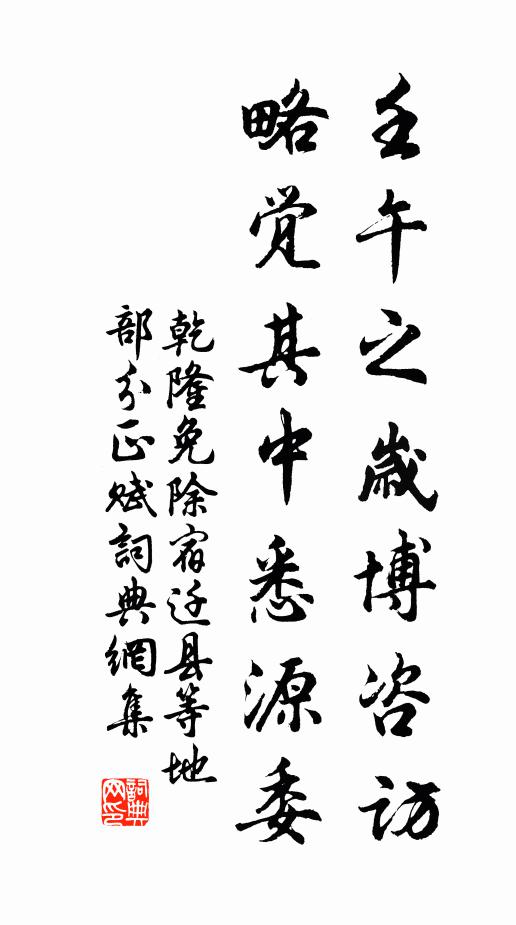 壬午之歲博咨访
略觉其中悉源委
乾隆免除宿迁县等地
部分正赋詞典網集
詞典
网印